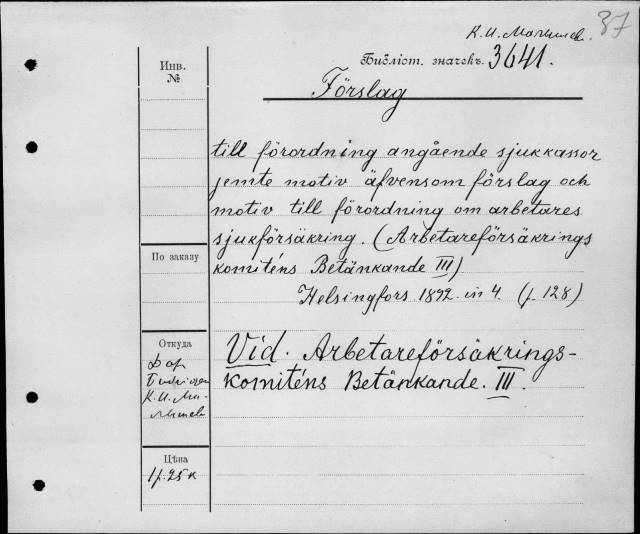 37
К. И. Малышев.
Инв.
№
Библіот. значекъ. 3641.
Förslag
till förordning angående sjukkassor
jemte motiv äfvensom förslag och
motiv till förordning om arbetares
sjukförsäkring. (Arbetareförsäkrings
komiténs Betänkande III)
Helsingfors 1892. in 4. (p. 128)
По заказу
Откуда
Дар
К. И. Ма-
лышев
Vid. Arbetareförsäkrings-
komiténs Betänkande. III.
Цѣна
1 р. 25 к